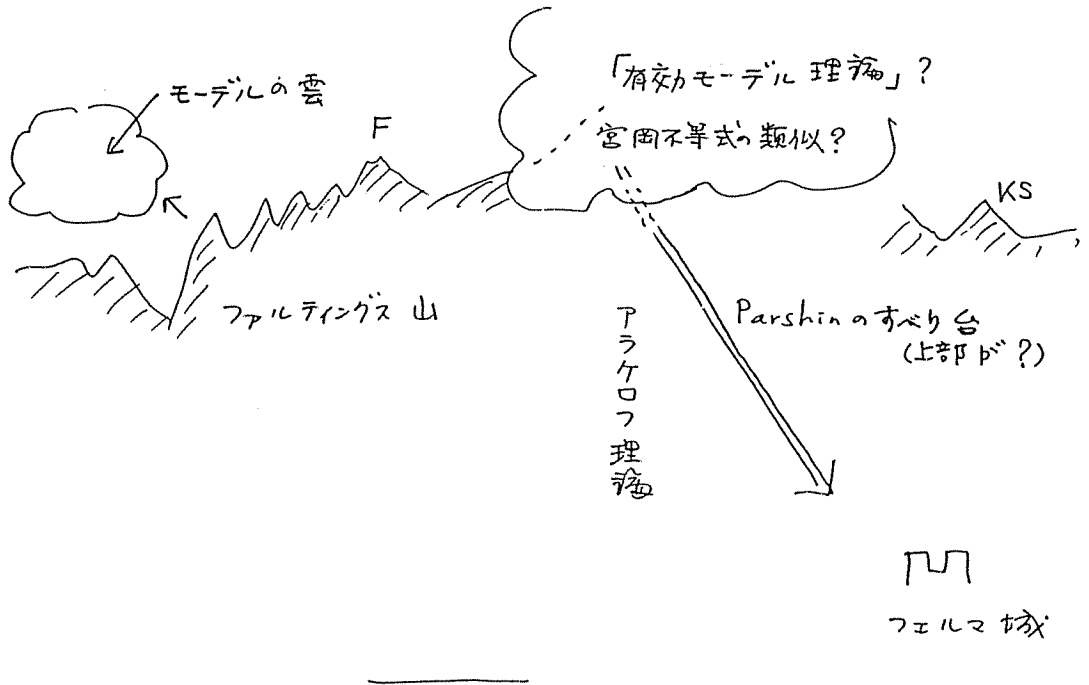 モーデルの雲
「有効モーデル理論」?
宮岡不等式の類似?
F
KS
ファルティングス山
アラケロフ理論
Parshinのすべり台
(上部が?)
フェルマ城